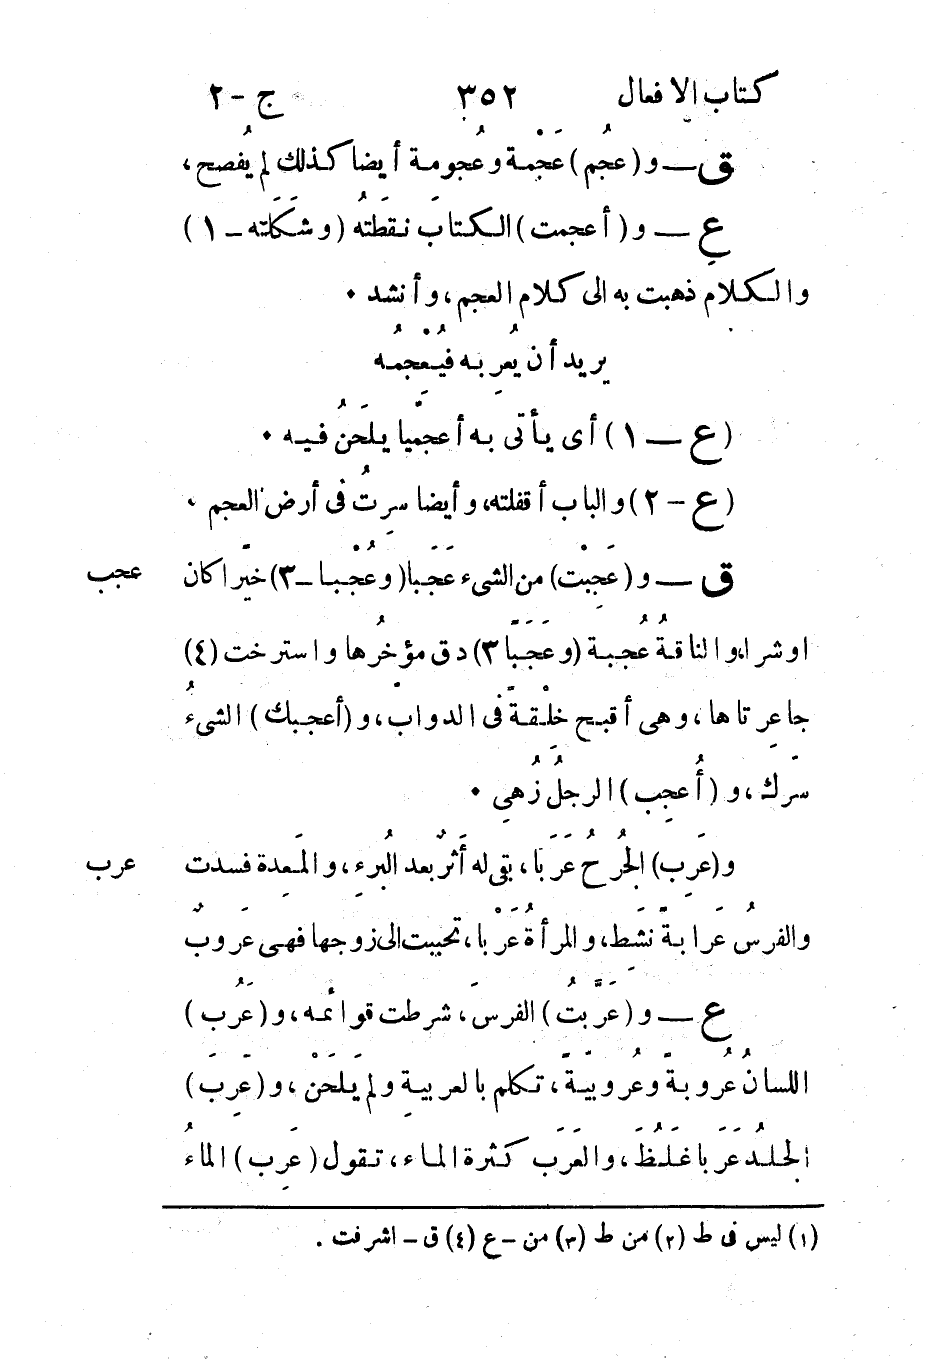 كتاب الافعال ٣٥٢ ج - ٢
ق — و (عجُم) عُجْمَة وعُجومة أيضا كذلك لم يُفصح،
ع — و (أعجمت) الكتابَ نقَطتُه (وشَكَلته - ١)
والكلام ذهبت به الى كلام العجم، وأنشد ٠
يريد أن يُعرِبه فيُعْجِمُه
(ع — ١) أى يأتى به أعجميّا يلحَنُ فيه ٠
(ع - ٢) والباب أقفلته، وأيضا سرتُ فى أرض العجم ،
ق — و (عَجِبْت) من الشىء عَجَبا (وعُجْبا - ٣) خيرّا كان
عجب
اوشرا، والناقةُ عُجبة (وعَجَبًا ٣) دق مؤخرُها واسترخت (٤)
جاعرتاها، وهى أقبح خِلْقةً فى الدوابّ، و (أعجبك) الشىءُ
سَرّك، و (أُعجِب) الرجلُ زُهِي ٠
و (عَرِب) الجُرحُ عَرَبا، بقى له أَثرٌ بعد البُرء، والمَعِدة فسدت
عرب
والفرسُ عَرابةً نَشِط، والمرأةُ عَرْبا، تحببت الى زوجها فهى عَروبٌ
ع — و (عَرَّبتُ) الفرسَ، شرطت قوائمه، و (عَرُب)
اللسانُ عُروبةً وعُروبيةً، تكلم بالعربية ولم يَلحَنْ، و (عَرِبَ)
الجلدُ عَرَبا غَلُظَ، والعَرَب كثرة الماء، تقول (عَرِب) الماءُ
(١) ليس فى ط (٢) من ط (٣) من - ع (٤) ق - اشرفت .